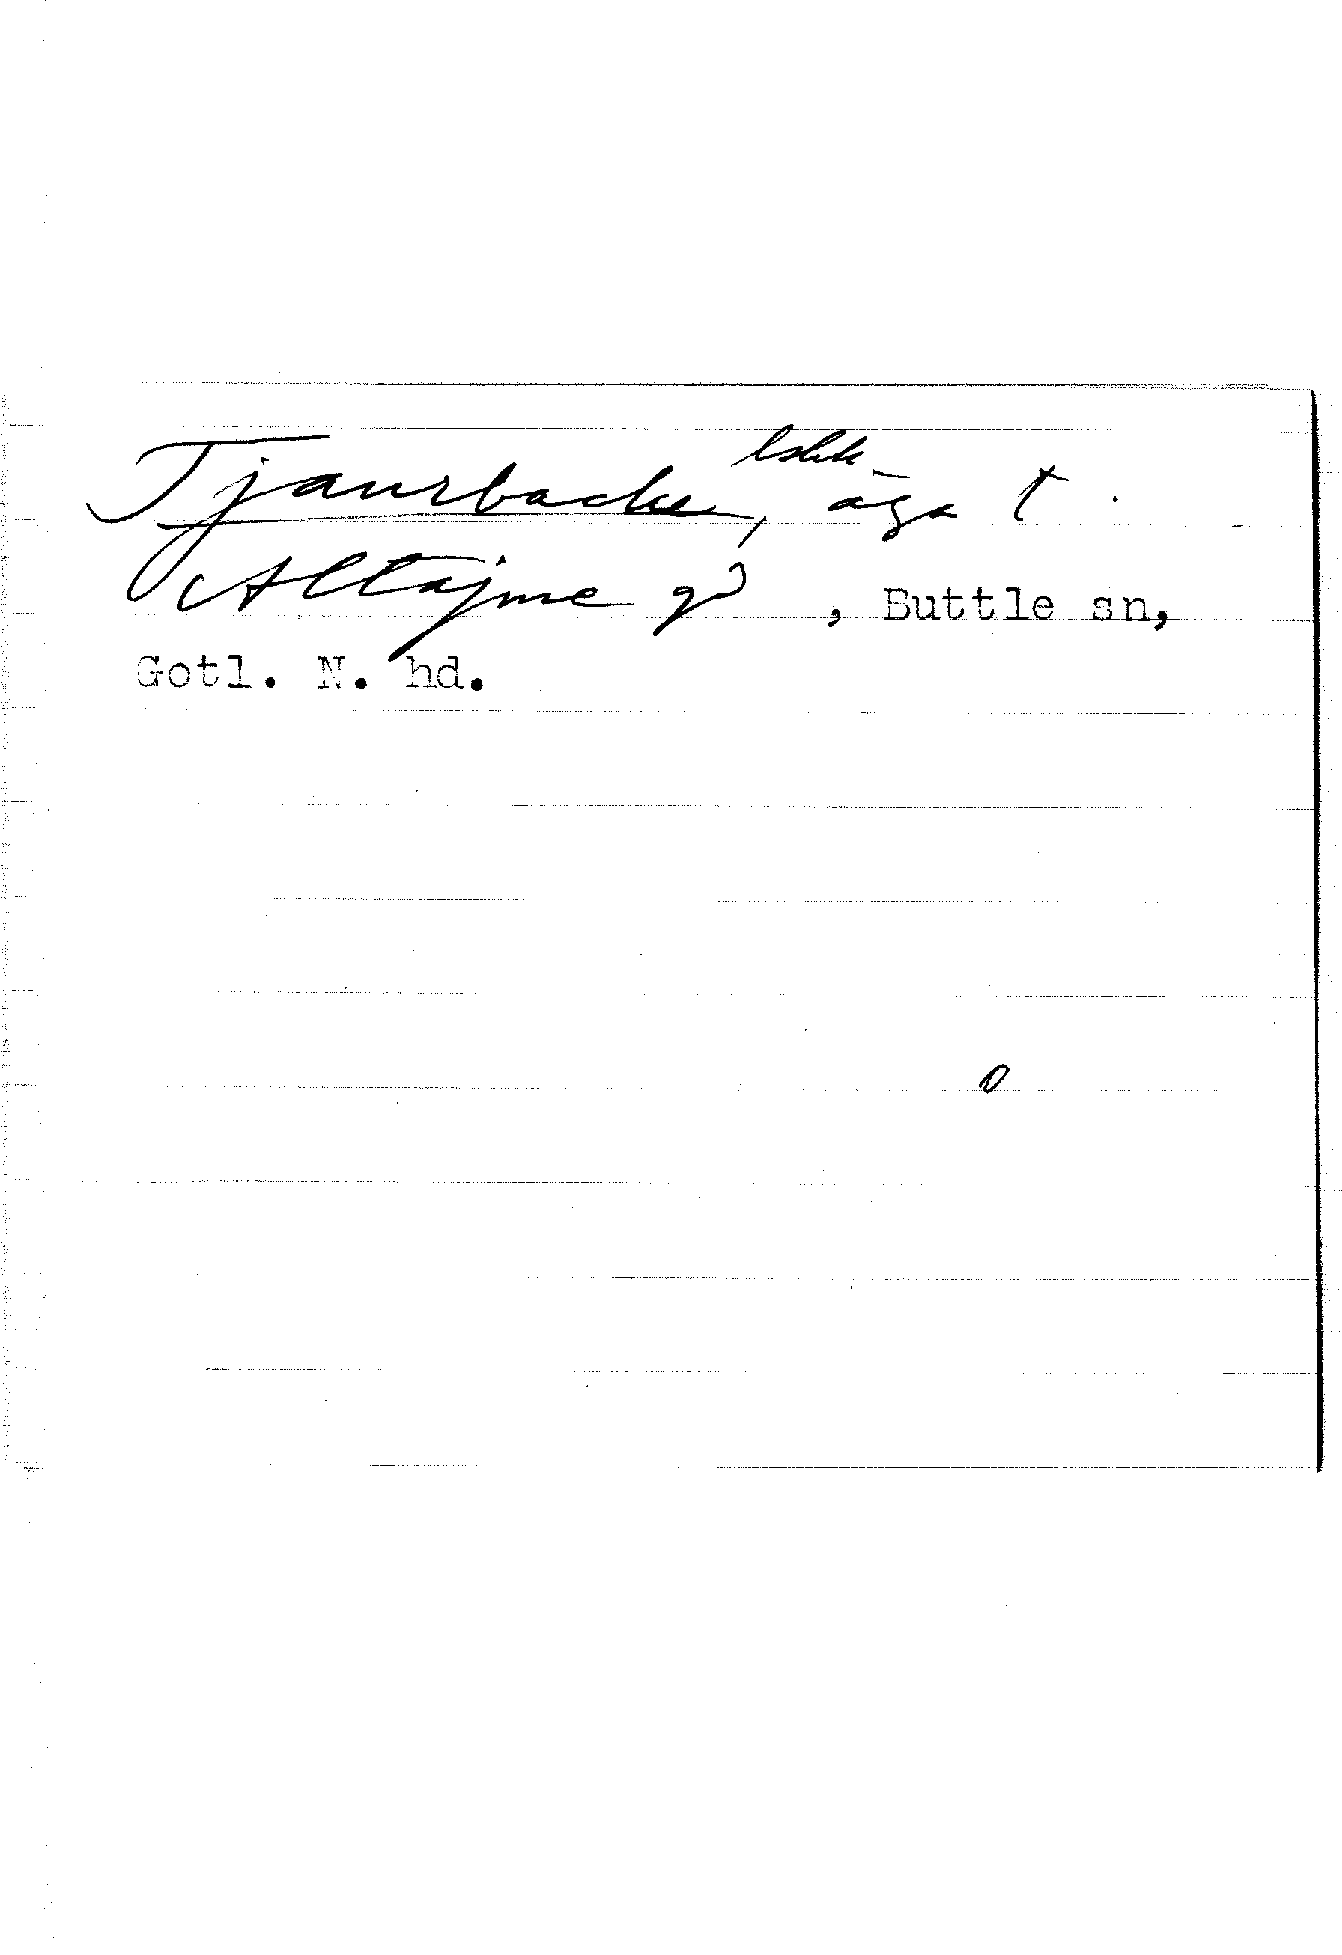 Tjaursbacke, äga t.
Altajme gd, Buttle sn,
Gotl. N. hd.